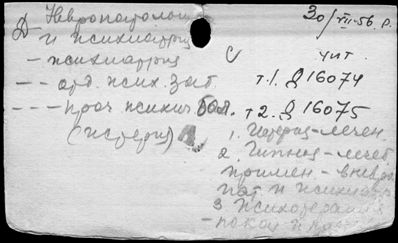 Д Невропатолог
и психиатрия
- психиатрия
- - отд. псих. заб.
- - - проч психич бол.
(истерия)
30/VII-56. р.
С чит.
т.1. Д 16074
т 2. Д 16075
1. Истерия-лечен.
2. Гипноз-лечеб.
примен. - в невро
пат. и психиатр
3 Психотерапия
- покой и